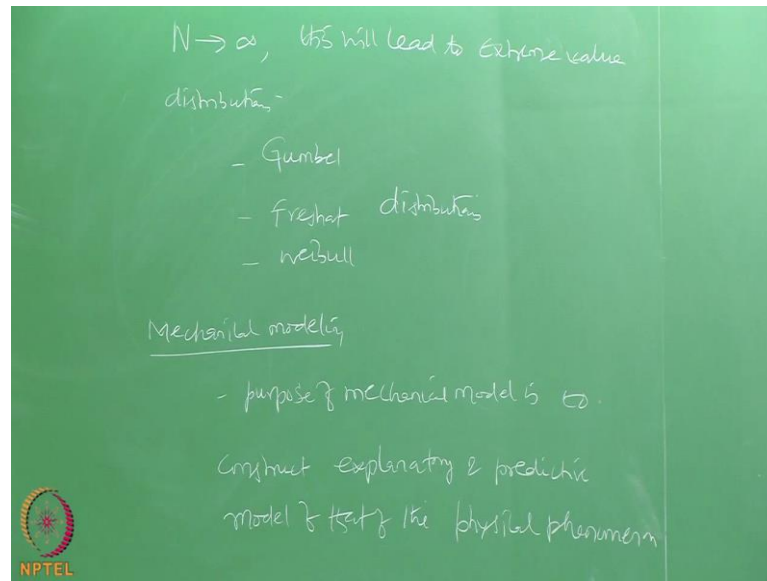 N → ∞, this will lead to extreme value
distribution -
- Gumbel
- freshat distribution
- weibull
Mechanical modeling
- purpose of mechanical model is to.
construct explanatory & predictive
model of that of the physical phenomenon
NPTEL